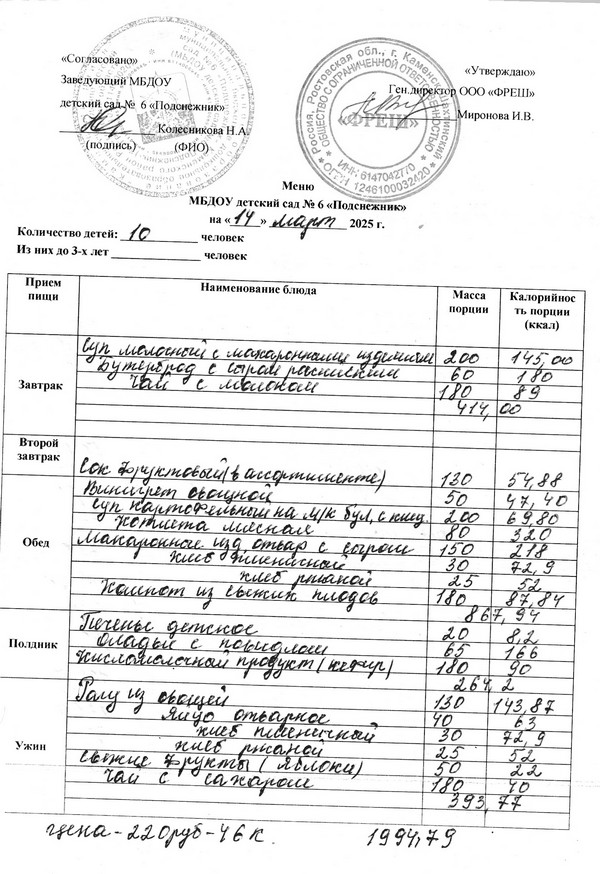 «Согласовано»
Заведующий МБДОУ
детский сад № 6 «Подснежник»
Колесникова Н.А.
(подпись) (ФИО)
«Утверждаю»
Ген.директор ООО «ФРЕШ»
Миронова И.В.
Россия, Ростовская обл., г. Каменск-Шахтинский
ОБЩЕСТВО С ОГРАНИЧЕННОЙ ОТВЕТСТВЕННОСТЬЮ
«ФРЕШ»
ИНН 6147042770
ОГРН 1246100032420
Меню
МБДОУ детский сад № 6 «Подснежник»
на «14» март 2025 г.
Количество детей: 10 человек
Из них до 3-х лет человек
Прием пищи Наименование блюда Масса порции Калорийность порции (ккал)
Завтрак
Суп молочный с макаронными изделиями 200 145,00
Бутерброд с сыром российским 60 180
Чай с молоком 180 89
414,00
Второй завтрак
Сок фруктовый (в ассортименте) 130 54,88
Обед
Винегрет овощной 50 47,40
Суп картофельный на м/к бул. с 200 69,80
Котлета мясная 80 320
Макаронные изд. отвар с сыром 150 218
Хлеб пшеничный 30 72,9
Хлеб ржаной 25 52
Компот из свежих плодов 180 87,84
867,94
Полдник
Печенье детское 20 8,2
Оладьи с повидлом 65 166
Кисломолочный продукт (кефир) 180 90
264,2
Ужин
Рагу из овощей 130 143,87
Яйцо отварное 40 63
Хлеб пшеничный 30 72,9
Хлеб ржаной 25 52
Свежие фрукты (яблоки) 50 22
Чай с сахаром 180 40
393,77
цена - 220руб - 46 к. 1994,79